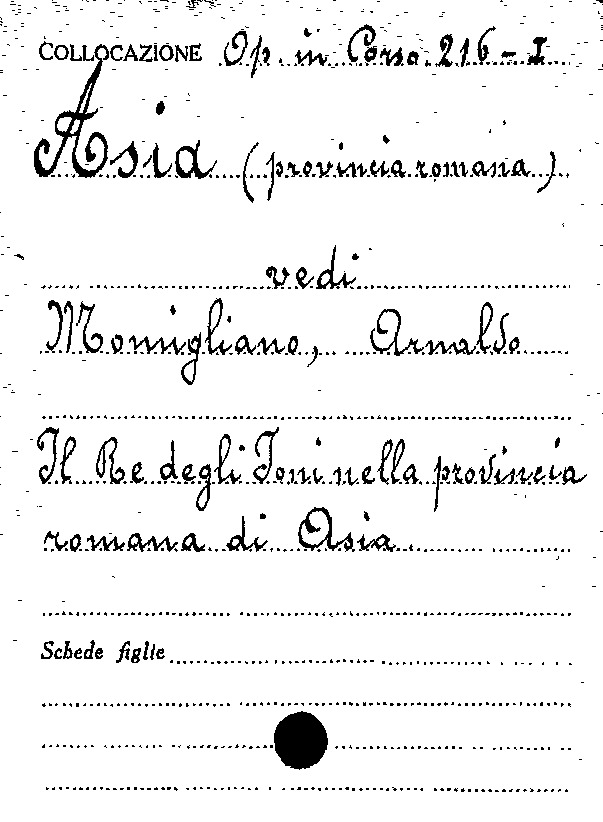 COLLOCAZIONE Op. in Corso. 216 - I
Asia (provincia romana)
vedi
Momigliano, Arnaldo
Il Re degli Ioni nella provincia
romana di Asia
Schede figlie